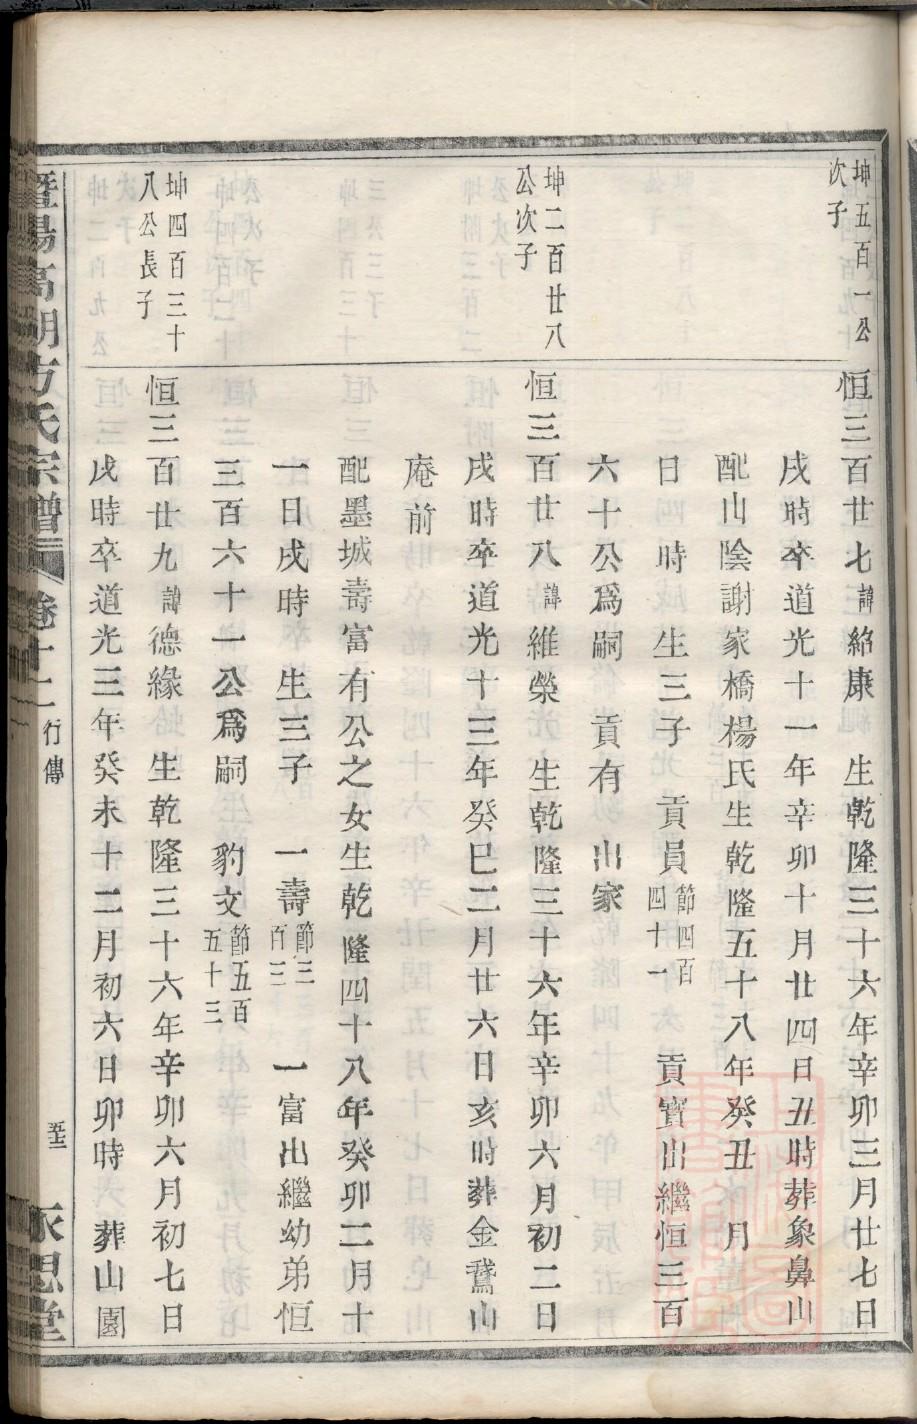 坤五百一公
次子
恒三百廿七諱紹康　生乾隆三十六年辛卯三月廿七日
戌時卒道光十一年辛卯十月廿四日丑時葬象鼻山
配山陰謝家橋楊氏生乾隆五十八年癸丑　月
日　時　生三子　貢員節四百四十一　貢寶出繼恒三百
六十公爲嗣　貢有　出家
坤二百廿八
公次子
恒三百廿八諱維榮　生乾隆三十六年辛卯六月初二日
戌時卒道光十三年癸巳二月廿六日亥時葬金鵞山
庵前
配墨城壽富有公之女生乾隆四十八年癸卯二月十
一日戌時　生三子　一壽節三百三　一富出繼幼弟恒
三百六十一公爲嗣　豹文節五百五十三
坤四百三十
八公長子
恒三百廿九諱德緣　生乾隆三十六年辛卯六月初七日
戌時卒道光三年癸未十二月初六日卯時　葬山園
暨陽高湖方氏宗譜　卷十二　行傳　　永思堂